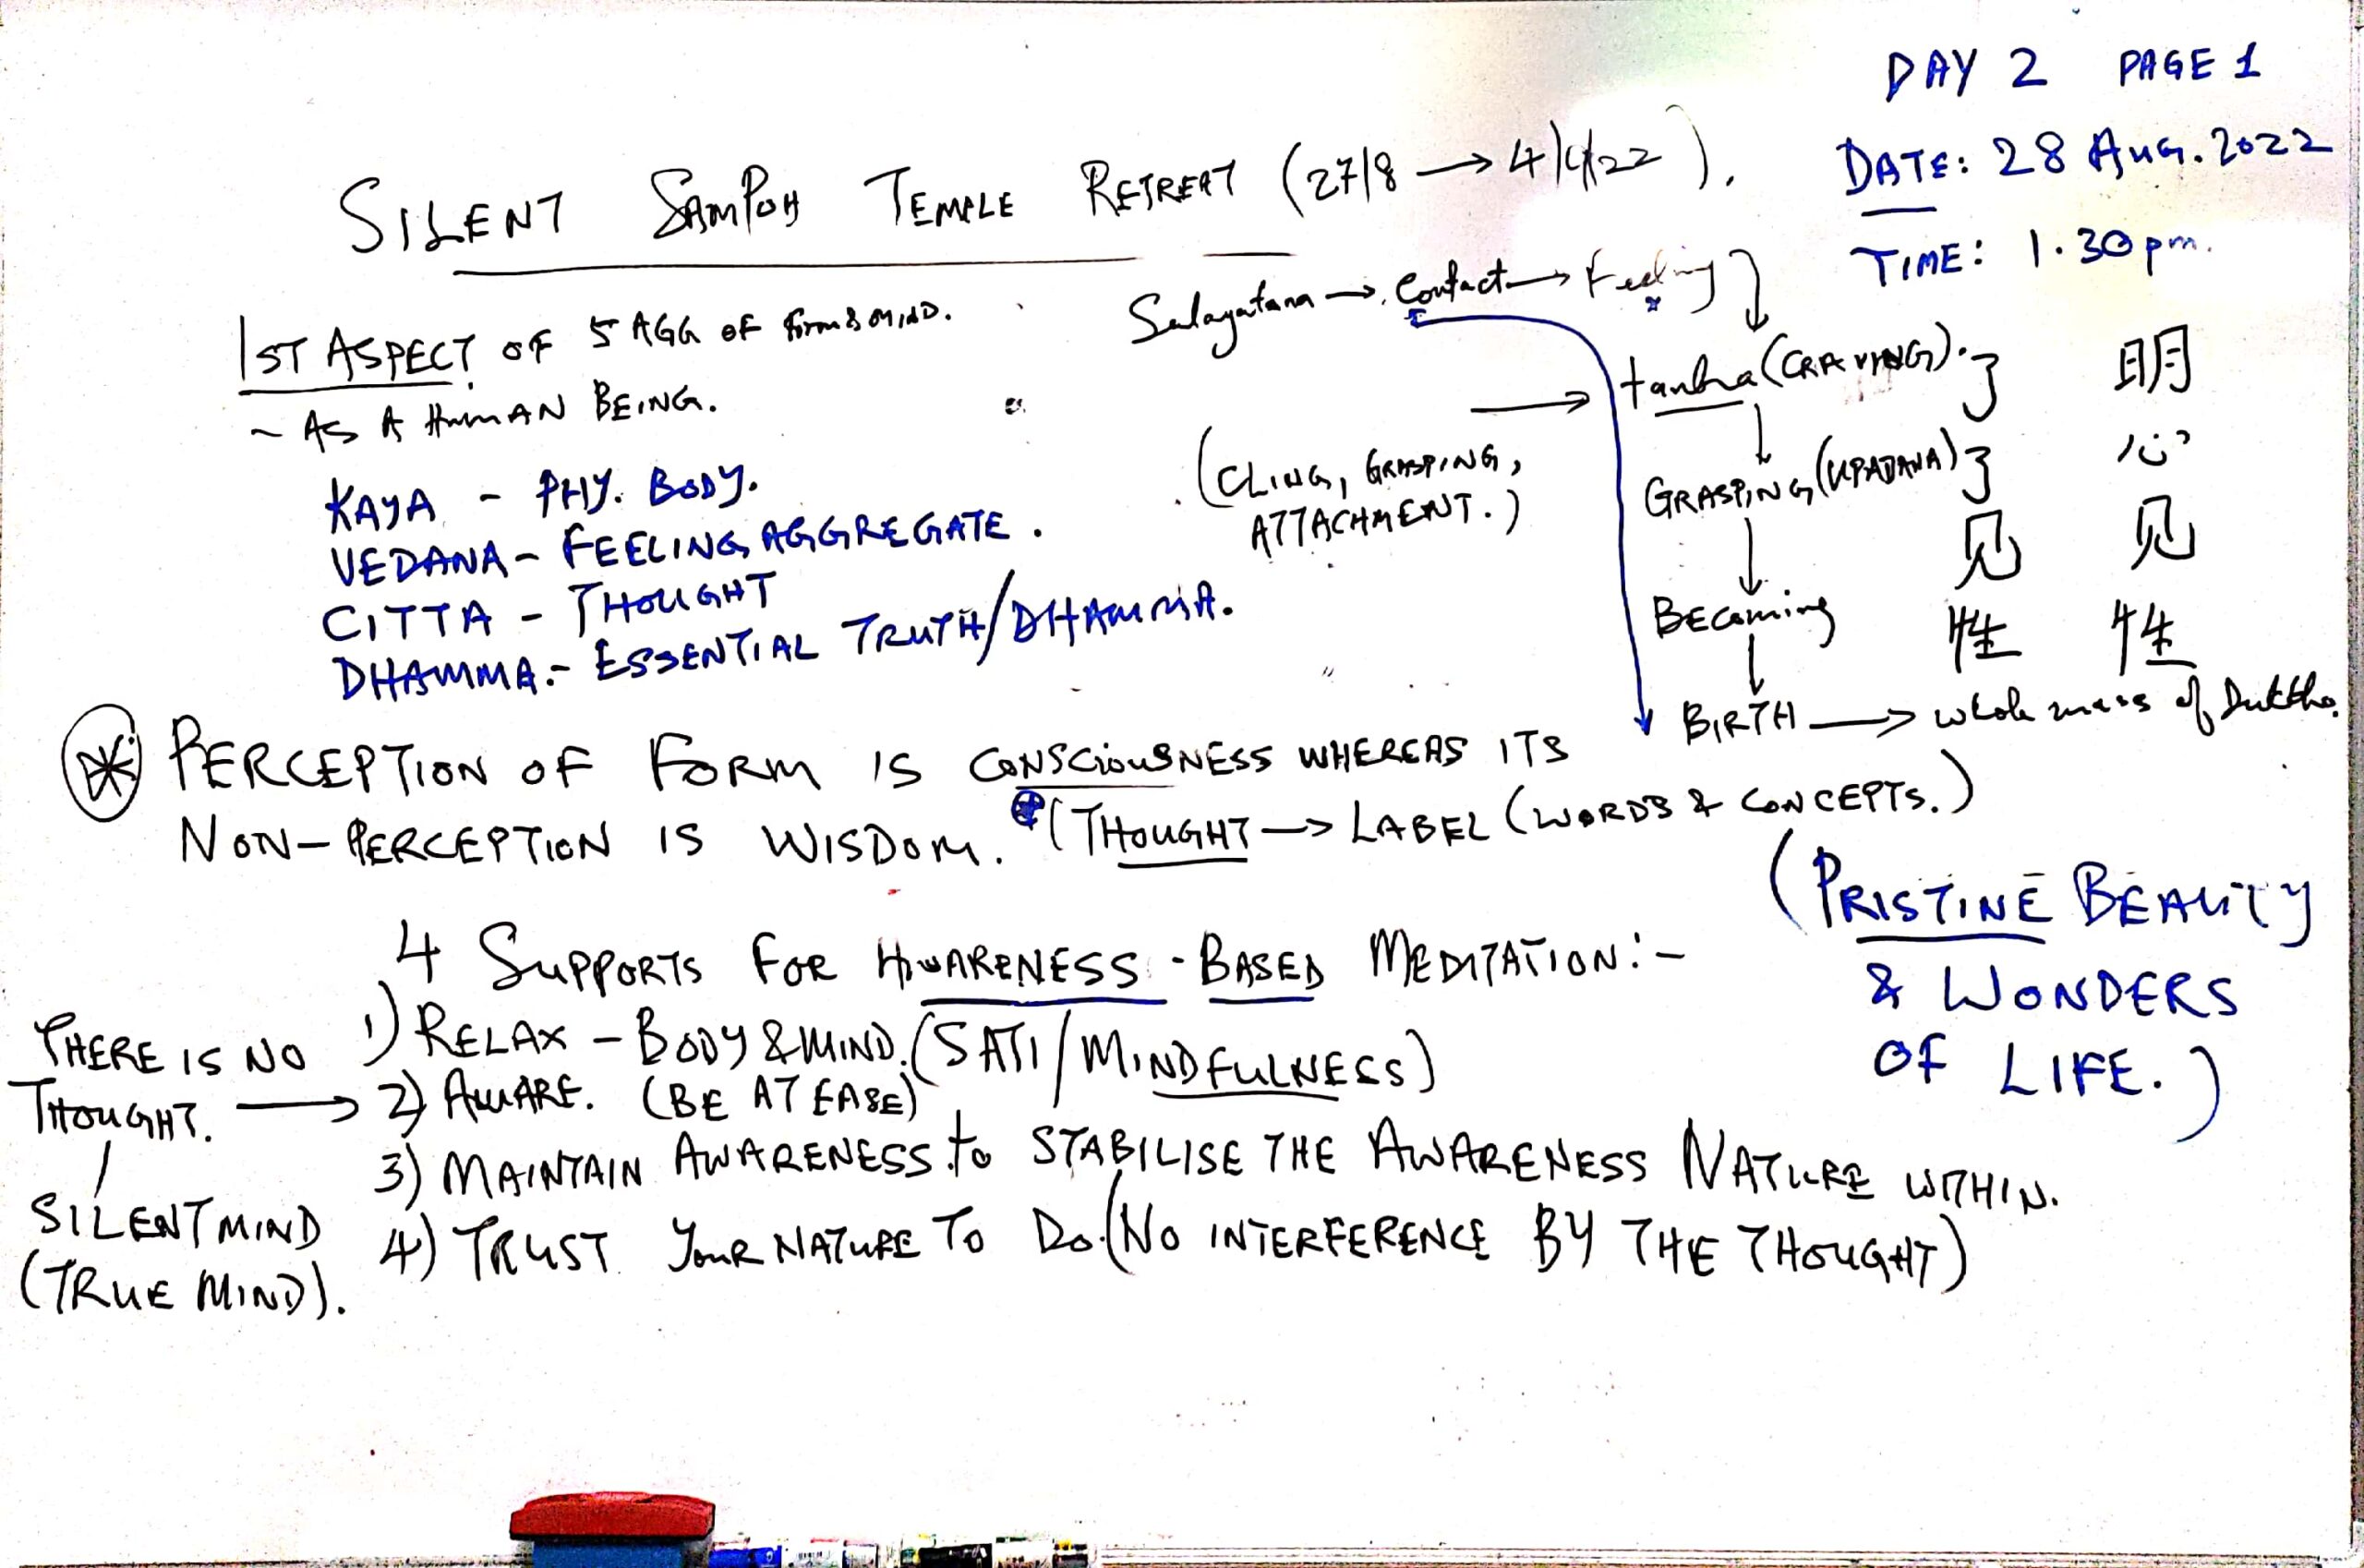 DAY 2 PAGE 1
DATE: 28 AUG. 2022
TIME: 1.30 pm.
SILENT SAMPOH TEMPLE RETREAT (27/8 → 4/9/22).
1ST ASPECT OF 5 AGG OF Form & MIND.
~ AS A HUMAN BEING.
KAYA - PHY. BODY.
VEDANA - FEELING AGGREGATE.
CITTA - THOUGHT
DHAMMA:- ESSENTIAL TRUTH/DHAMMA.
Salayatana → Contact → Feeling
→ tanha (CRAVING).
(CLING, GRASPING,
ATTACHMENT.)
GRASPING (UPADANA)
Becoming
BIRTH → whole mass of Dukkha.
见
性
明
心
见
性
PERCEPTION OF FORM IS CONSCIOUSNESS WHEREAS ITS
NON-PERCEPTION IS WISDOM. (THOUGHT → LABEL (WORDS & CONCEPTS.)
(PRISTINE BEAUTY
& WONDERS
OF LIFE.)
4 SUPPORTS FOR AWARENESS-BASED MEDITATION:-
1) RELAX - BODY & MIND. (SATI/MINDFULNESS)
2) AWARE. (BE AT EASE)
3) MAINTAIN AWARENESS to STABILISE THE AWARENESS NATURE WITHIN.
4) TRUST YOUR NATURE TO DO. (NO INTERFERENCE BY THE THOUGHT)
THERE IS NO
THOUGHT. →
SILENT MIND
(TRUE MIND).